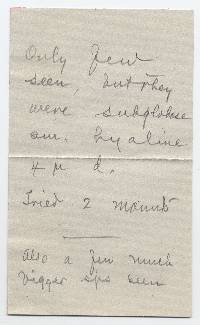 Only few
seen, but they
were subglobose
sm. hyaline
4 μ d.
Tried 2 mounts
Also a few much
bigger sps seen